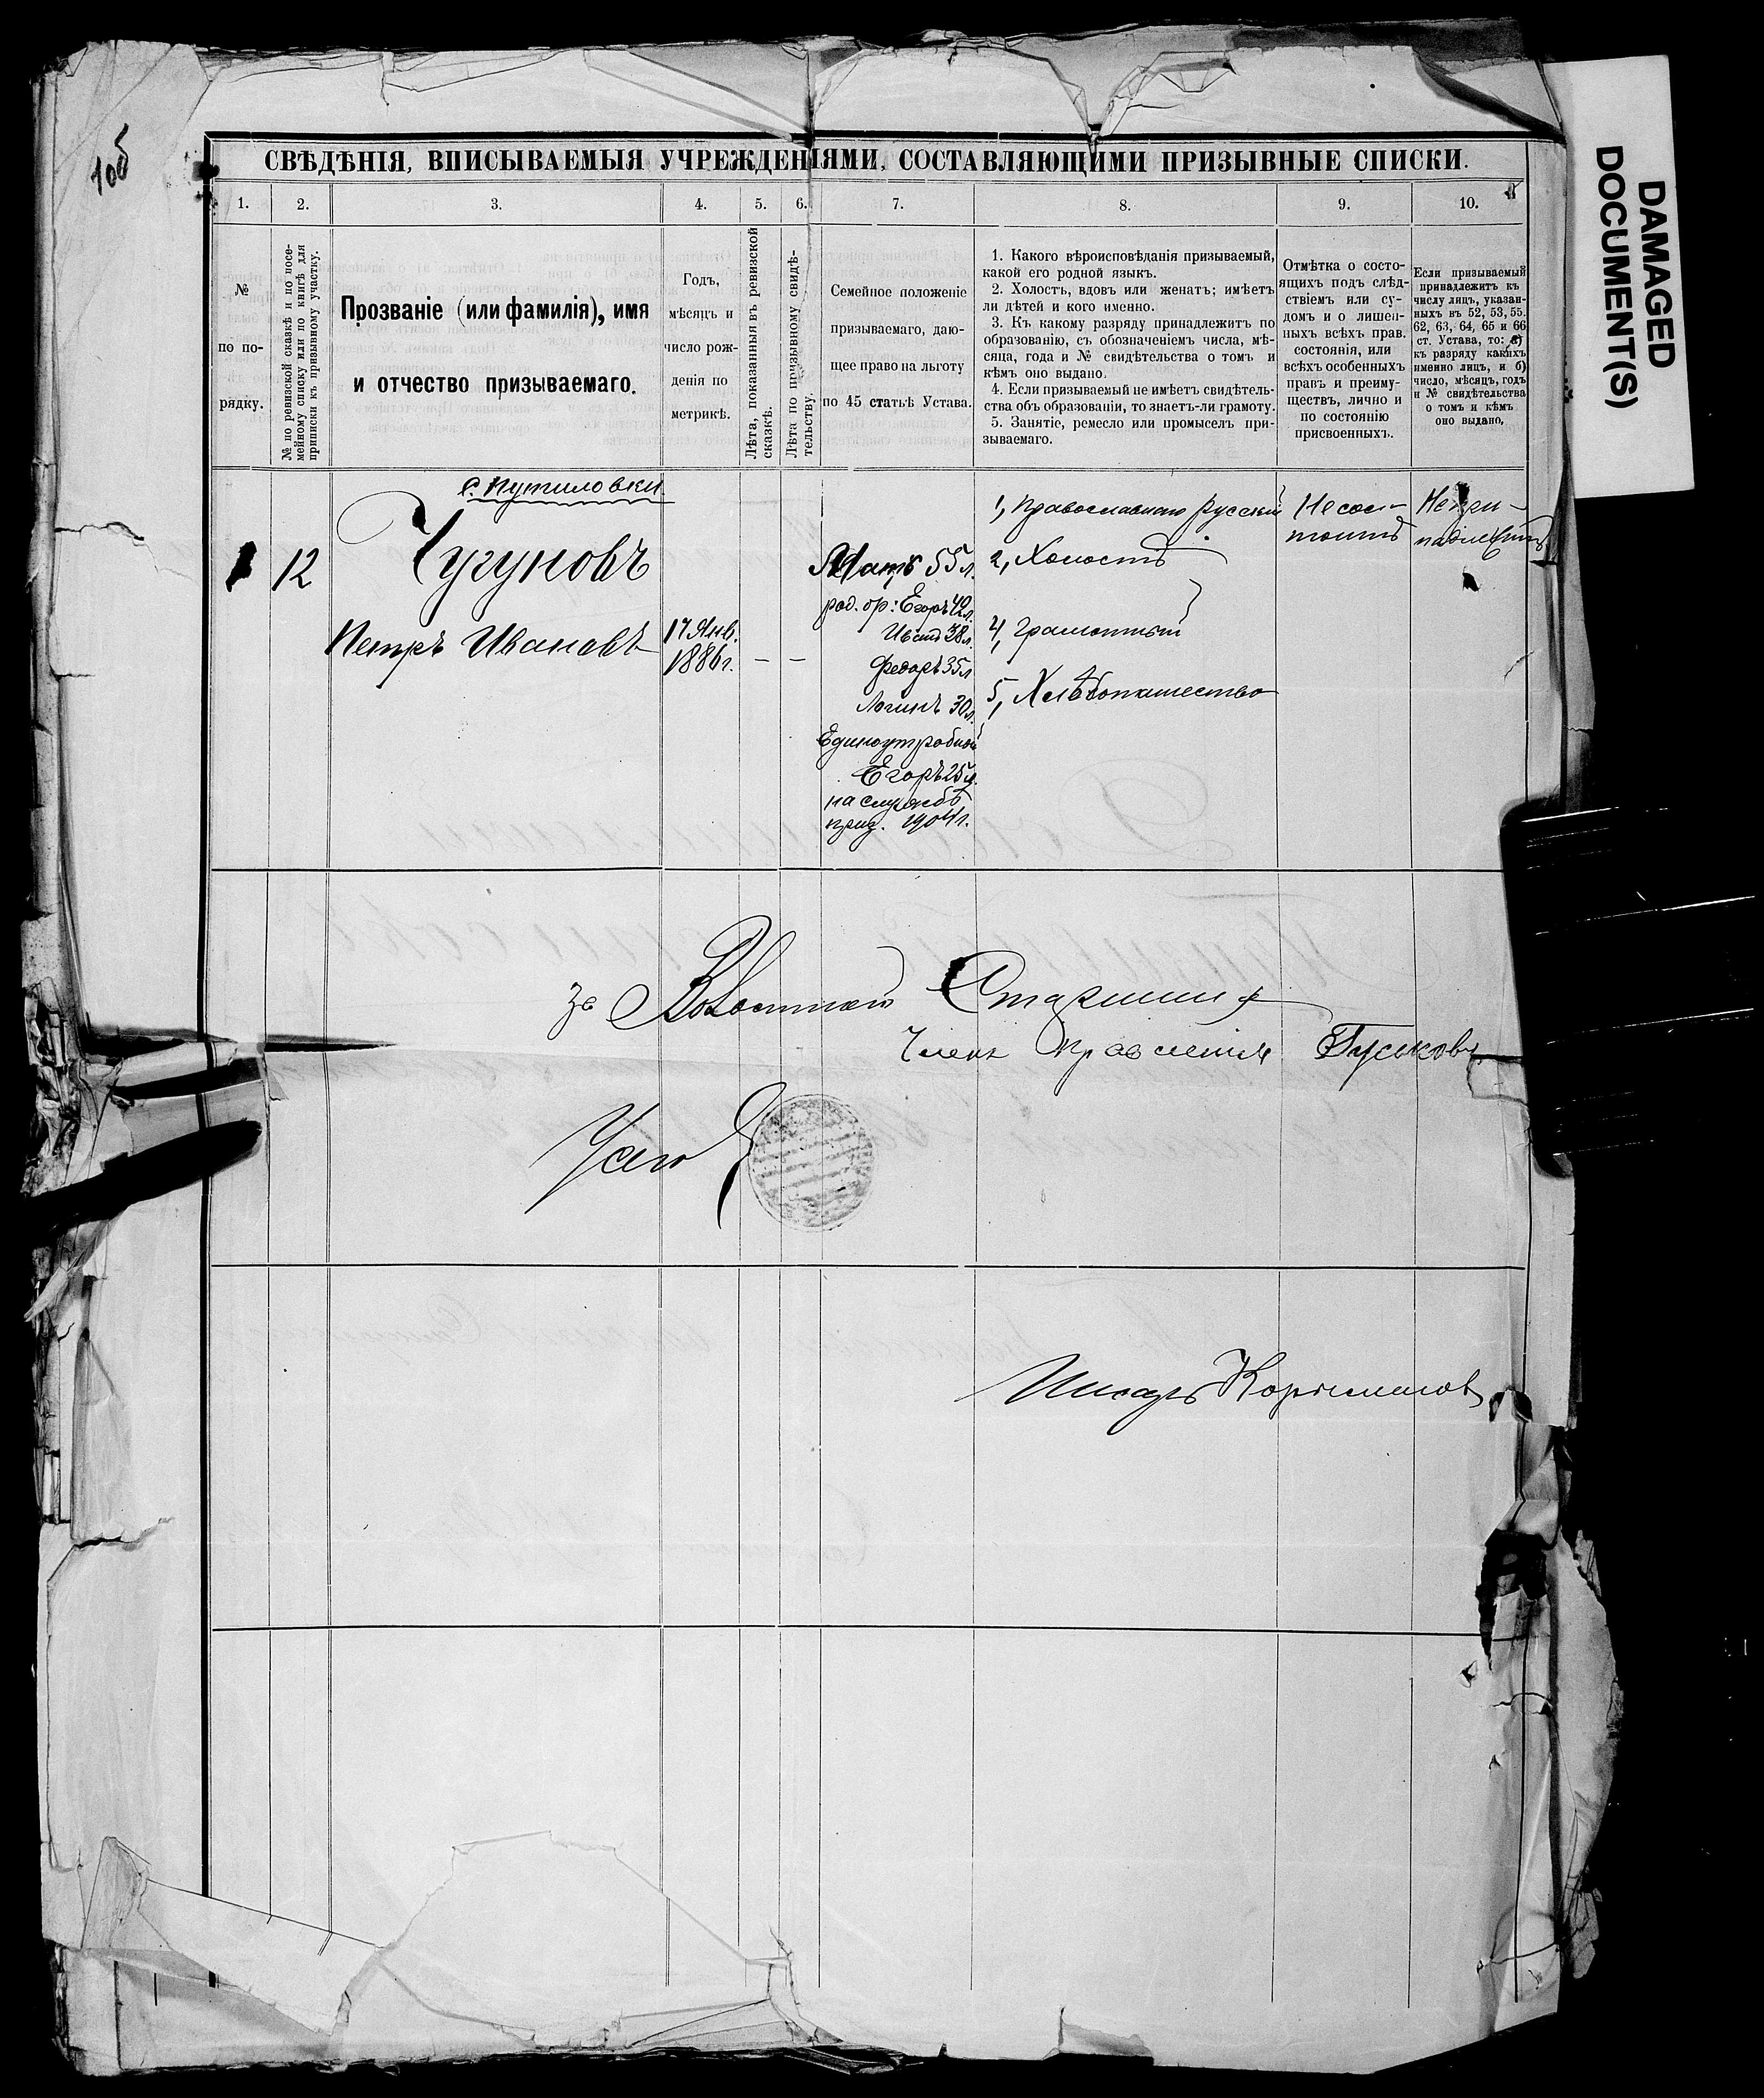 DAMAGED
DOCUMENT(S)
СВѢДѢНІЯ, ВПИСЫВАЕМЫЯ УЧРЕЖДЕНІЯМИ, СОСТАВЛЯЮЩИМИ ПРИЗЫВНЫЕ СПИСКИ.
1. 2. 3. 4. 5. 6. 7. 8. 9. 10.
№
по по-
рядку.
№ по ревизской сказкѣ и по посе-
мейному списку или по книгѣ для
приписки къ призывному участку.
Прозваніе (или фамилія), имя
и отчество призываемаго.
Годъ,
мѣсяцъ и
число рож-
денія по
метрикѣ.
Лѣта, показанныя въ ревизской
сказкѣ.
Лѣта по призывному свидѣ-
тельству.
Семейное положеніе
призываемаго, даю-
щее право на льготу
по 45 статьѣ Устава.
1. Какого вѣроисповѣданія призываемый,
какой его родной языкъ.
2. Холостъ, вдовъ или женатъ; имѣетъ
ли дѣтей и кого именно.
3. Къ какому разряду принадлежитъ по
образованію, съ обозначеніемъ числа, мѣ-
сяца, года и № свидѣтельства о томъ и
кѣмъ оно выдано.
4. Если призываемый не имѣетъ свидѣтель-
ства объ образованіи, то знаетъ-ли грамоту.
5. Занятіе, ремесло или промыселъ при-
зываемаго.
Отмѣтка о состо-
ящихъ подъ слѣд-
ствіемъ или су-
домъ и о лишен-
ныхъ всѣхъ прав.
состоянія, или
всѣхъ особенныхъ
правъ и преиму-
ществъ, лично и
по состоянію
присвоенныхъ.
Если призываемый
принадлежитъ къ
числу лицъ, указан-
ныхъ въ 52, 53, 55.
62, 63, 64, 65 и 66
ст. Устава, то: а)
къ разряду какихъ
именно лицъ, и б)
число, мѣсяцъ, годъ
и № свидѣтельства
о томъ и кѣмъ
оно выдано,
с. Путиловки.
1 12 Чугуновъ
Петръ Ивановъ
17 Янв.
1886 г.
— —
Мать 55 л.
род. бр: Егоръ 42 л.
Иванъ 38 л.
Федоръ 35 л
Логинъ 30 л.
Единоутробный
Егоръ 25 л.
на службѣ
приз. 1904 г.
1, Православнаго Русскій
2, Холостъ
4, Грамотный
5, Хлѣбопашество
Не сос-
тоитъ
Не при-
надлежитъ
За Волостнаго Старшину
Членъ Правленія Гуськовъ
Писарь